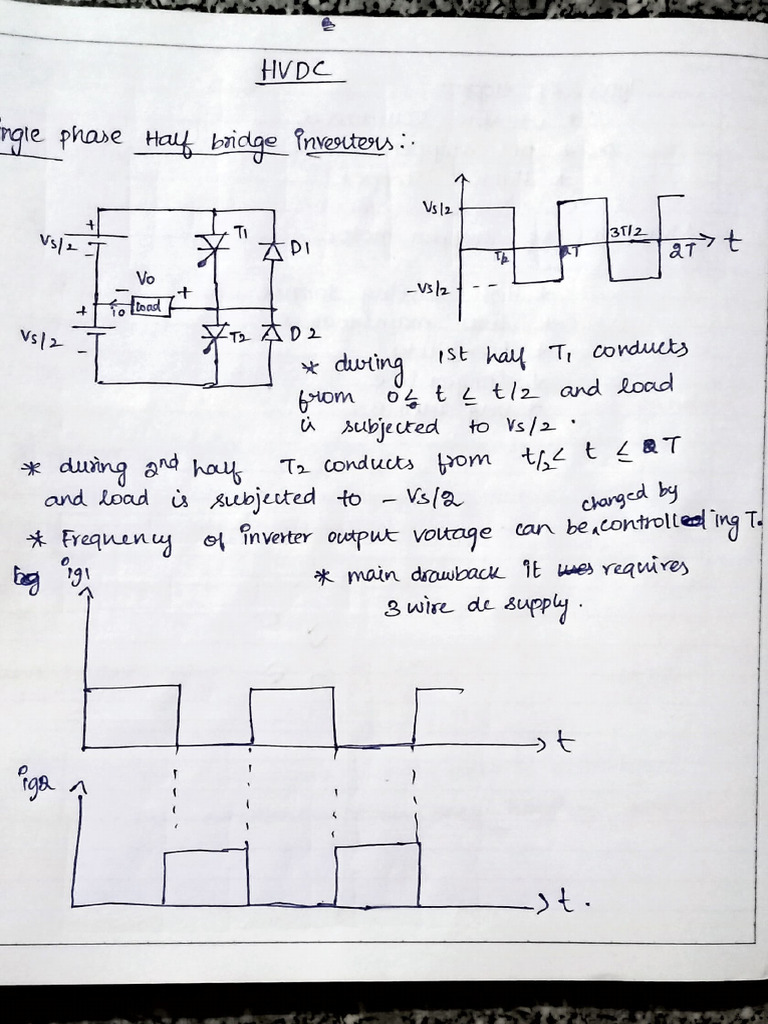 HVDC
ingle phase Half bridge inverters:-
Vs/2 + - T1 D1
Vo
- Load +
io
+ Vs/2 - T2 D2
Vs/2
-Vs/2
T/2 T 3T/2 2T t
* during 1st half T1 conducts
from 0 ≤ t ≤ t/2 and load
is subjected to Vs/2.
* during 2nd half T2 conducts from t/2 ≤ t ≤ T
and load is subjected to - Vs/2
* Frequency of inverter output voltage can be changed by controlling T.
* main drawback it requires
3 wire dc supply.
ig1
t
ig2
t.